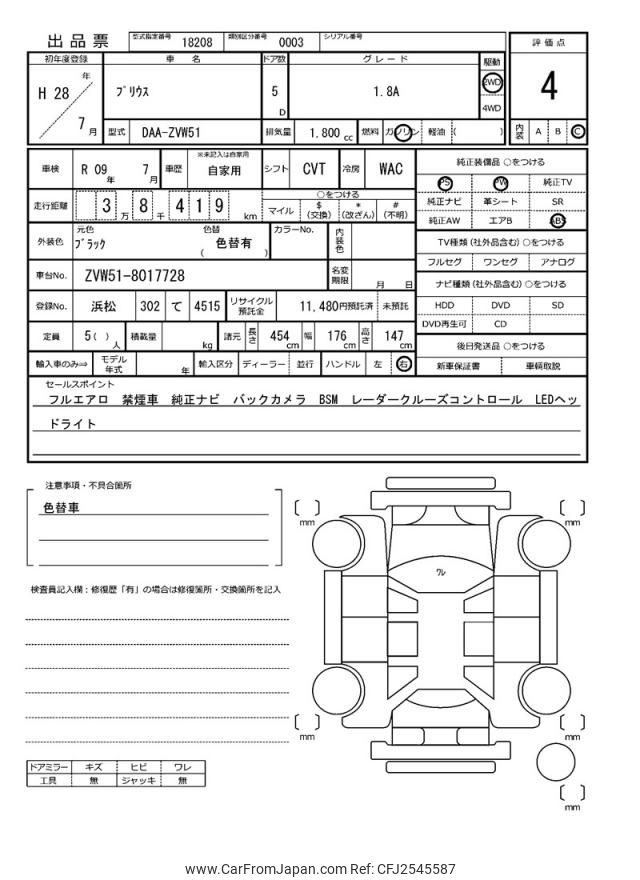 出品票 型式指定番号 18208 類別区分番号 0003 シリアル番号
初年度登録 車 名 ドア数 グレード 駆動 評価点
H 28 年 プリウス 5 D 1.8A 2WD 4
4WD
7 月 型式 DAA-ZVW51 排気量 1,800 cc 燃料 ガソリン 軽油 ( ) 内装 A B C
車検 R 09 年 7 月 車歴 ※未記入は自家用 自家用 シフト CVT 冷房 WAC
走行距離 3 万 8 千 4 1 9 km ○をつける
マイル $ (交換) * (改ざん) # (不明)
外装色 元色 ブラック 色替 ( 色替有 ) カラーNo. 内装色
車台No. ZVW51-8017728 名変期限 月 日
登録No. 浜松 302 て 4515 リサイクル預託金 11,480円預託済 未預託
定員 5 ( ) 人 積載量 kg 諸元 長さ 454 cm 幅 176 cm 高さ 147 cm
輸入車のみ⇒ モデル年式 年 輸入区分 ディーラー 並行 ハンドル 左 右
純正装備品 ○をつける
PS PW 純正TV
純正ナビ 革シート SR
純正AW エアB ABS
TV種類 (社外品含む) ○をつける
フルセグ ワンセグ アナログ
ナビ種類 (社外品含む) ○をつける
HDD DVD SD
DVD再生可 CD
後日発送品 ○をつける
新車保証書 車輌取説
セールスポイント
フルエアロ 禁煙車 純正ナビ バックカメラ BSM レーダークルーズコントロール LEDヘッ
ドライト
注意事項・不具合箇所
色替車
検査員記入欄：修復歴「有」の場合は修復箇所・交換箇所を記入
ドアミラー キズ ヒビ ワレ
工具 無 ジャッキ 無
[ ] mm
[ ] mm
ワレ
[ ] mm
[ ] mm
[ ] mm
www.CarFromJapan.com Ref: CFJ2545587